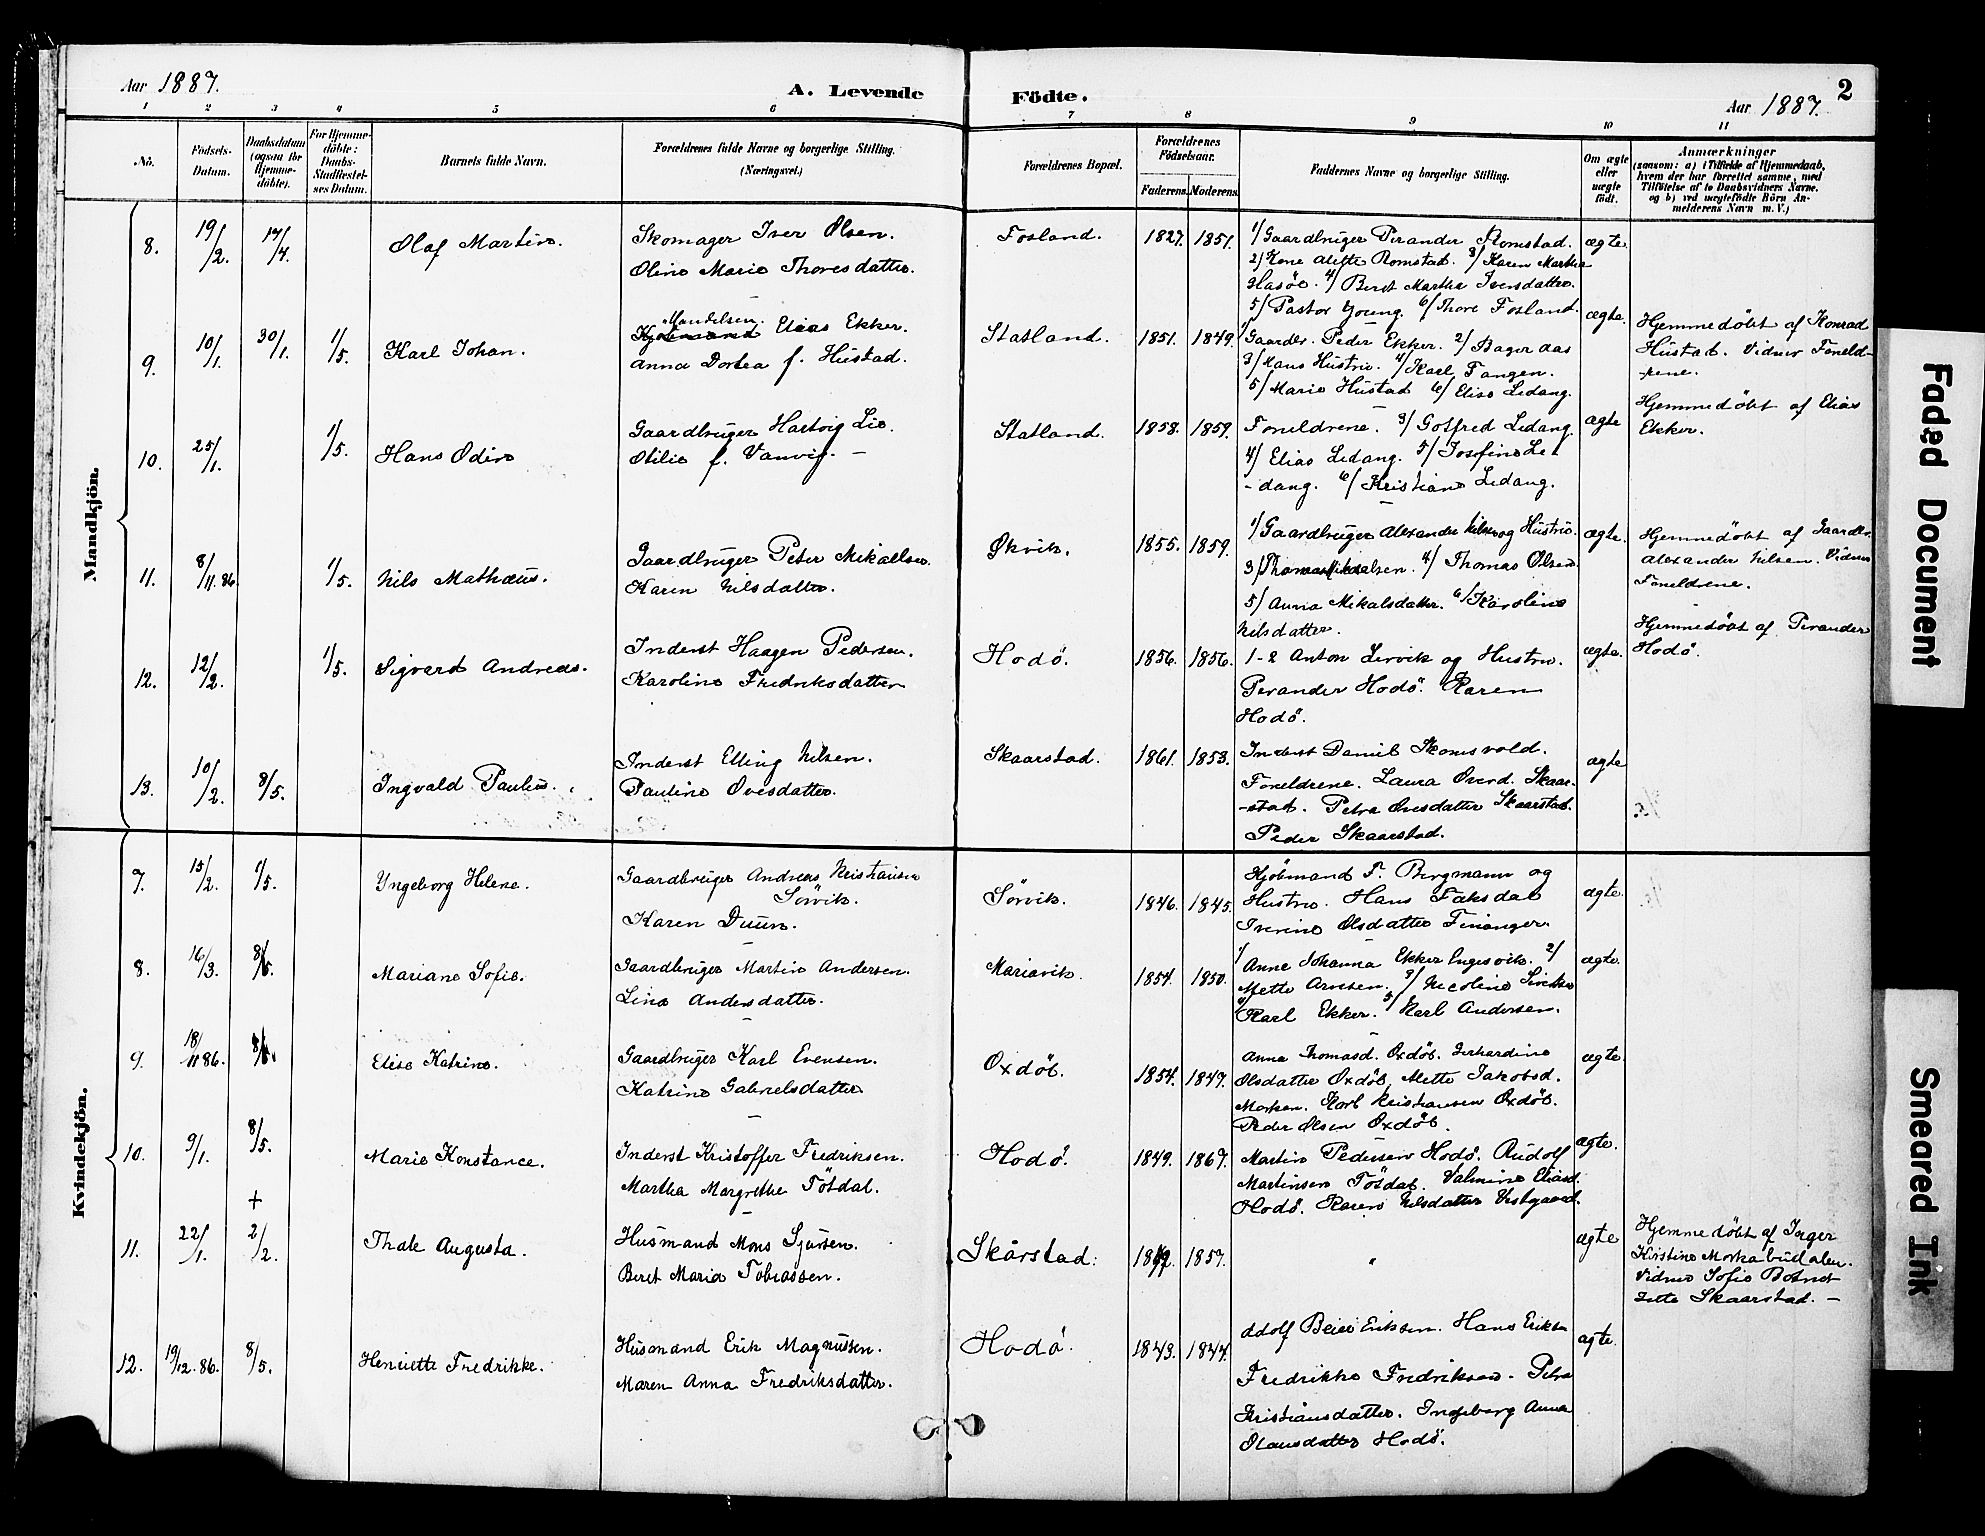 Aar 1887.
A. Levende
Födte.
2
Aar 1887.
1 2 3 4 5 6 7 8 9 10 11
No.
Födsels-
Datum.
Daabsdatum
(ogsaa for
Hjemme-
döbte).
For Hjemme-
döbte:
Daabs-
Stadfæstel-
ses Datum.
Barnets fulde Navn.
Forældrenes fulde Navne og borgerlige Stilling.
(Næringsvei.)
Forældrenes Bopæl.
Forældrenes
Födselsaar.
Faderens. Moderens.
Faddernes Navne og borgerlige Stilling.
Om ægte
eller
uægte
födt.
Anmærkninger
(saasom: a) i Tilfælde af Hjemmedaab,
hvem der har forrettet samme, med
Tilföielse af to Daabsvidners Navne.
og b) ved uægtefödte Börn An-
melderens Navn m. V.)
Mandkjön.
8. 19/2. 17/4. Olaf Martin. Skomager Iver Olsen. Fosland. 1827. 1851. 1/ Gaardbruger Perander Romstad. ægte.
Oline Marie Thoresdatter. 2/ Kone Alette Romstad. 3/ Karen Martha
Hasöe. 4/ Beret Martha Iversdatter.
5/ Pastor Young. 6/ Thore Fosland.
9. 10/1. 30/1. 1/5. Karl Johan. Mandelsen. Elias Ekker. Statland. 1851. 1849. 1/ Gaardbr. Peder Ekker. 2/ Bager Aas ægte. Hjemmedöbt af Konrad
Anna Dortea f. Hustad. 3/ Hans Hustru. 4/ Karl Tangen. Hustad. Vidner Foreld-
5/ Marie Hustad 6/ Elise Ledang. rene.
10. 25/1. 1/5. Hans Odin Gaardbruger Hartvig Lie. Statland. 1858. 1859. Foreldrene. 3/ Gotfred Ledang ægte Hjemmedöbt af Elias
Otilie f. Vanvig. — 4/ Elias Ledang. 5/ Josefine Le Ekker.
- dang. 6/ Kristiane Ledang.
11. 8/11.86. 1/5. Nils Mathæus. Gaardbruger Peter Mikalsen Økvik. 1855. 1859. 1/ Gaardbruger Alexander Nilsen og Hustru. ægte. Hjemmedöbt af Gaardbr.
Karen Nilsdatter. 3/ Thomas Mikalsen. 4/ Thomas Olsen Alexander Nilsen. Vidner
5/ Anna Mikalsdatter. 6/ Karoline Foreldrene.
Nilsdatter.
12. 12/2. 1/5. Sigvard Andreas. Inderst Haagen Pedersen. Hodö. 1856. 1856. 1-2 Anton Lervik og Hustru. ægte. Hjemmedöbt af Perander
Karoline Fredriksdatter Perander Hodö. Karen Hodö.
Hodö.
13. 10/2. 8/5. Ingvald Paulus. Inderst Elling Nilsen. Skaarstad. 1861. 1853. Inderst Daniel Skomsvold. ægte
Pauline Ovesdatter. Foreldrene. Laura Overd. Skaar-
-stad. Petra Ovesdatter Skaarstad.
Peder Skaarstad.
Kvindekjön.
7. 15/2. 1/5. Yngeborg Helene. Gaardbruger Andreas Kristiansen Sörvik. 1846. 1845. Kjöbmand F. Bergmann og ægte.
Sörvik. Hustru. Hans Faksdal
Karen Duun. Iverine Olsdatter Finanger.
8. 16/3. 8/5. Mariane Sofie. Gaardbruger Martin Andersen. Mariavik. 1854. 1850. 1/ Anne Johanna Ekker Engesvik. 2/ ægte.
Line Andersdatter. Mette Arntsen. 3/ Nicoline
4/ Karl Ekker. 5/ Karl Andersen.
9. 18/11 86. 8/5. Elise Katrine. Gaardbruger Karl Evensen. Oxdöb. 1854. 1847. Anna Thomasd. Oxdöb. Gerhardine ægte.
Katrine Gabrielsdatter Olsdatter Oxdöb. Mette Jakobsd.
Morken. Karl Kristiansen Oxdöb.
Peder Olsen Oxdöb.
10. 9/1. 8/5. Marie Konstance. Inderst Kristoffer Fredriksen. Hodö. 1849. 1867. Martin Pedersen Hodö. Rudolf ægte.
Martha Margrethe Tösdal. Martinsen Tösdal. Valmine Eliasd.
Hodö. Karen Nilsdatter Vestgaard.
+
11. 22/1. 2/2. Thale Augusta. Husmand Mons Sjursen. Skårstad. 1857. " ægte Hjemmedöbt af Inger
Beret Maria Tobiassen. Kristine Morkabudalen.
Vidner Sofie Botnet
Jette Skaarstad. —
12. 19/12.86. 8/5. Henriette Fredrikke. Husmand Erik Magnussen. Hodö. 1843. 1844. Adolf Beier Eriksen. Hans Eriksen ægte.
Maren Anna Fredriksdatter. Fredrikke Fredriksen. Petra
Kristiansdatter. Ingeborg Anna
Olausdatter Hodö.
Faded Document
Smeared Ink